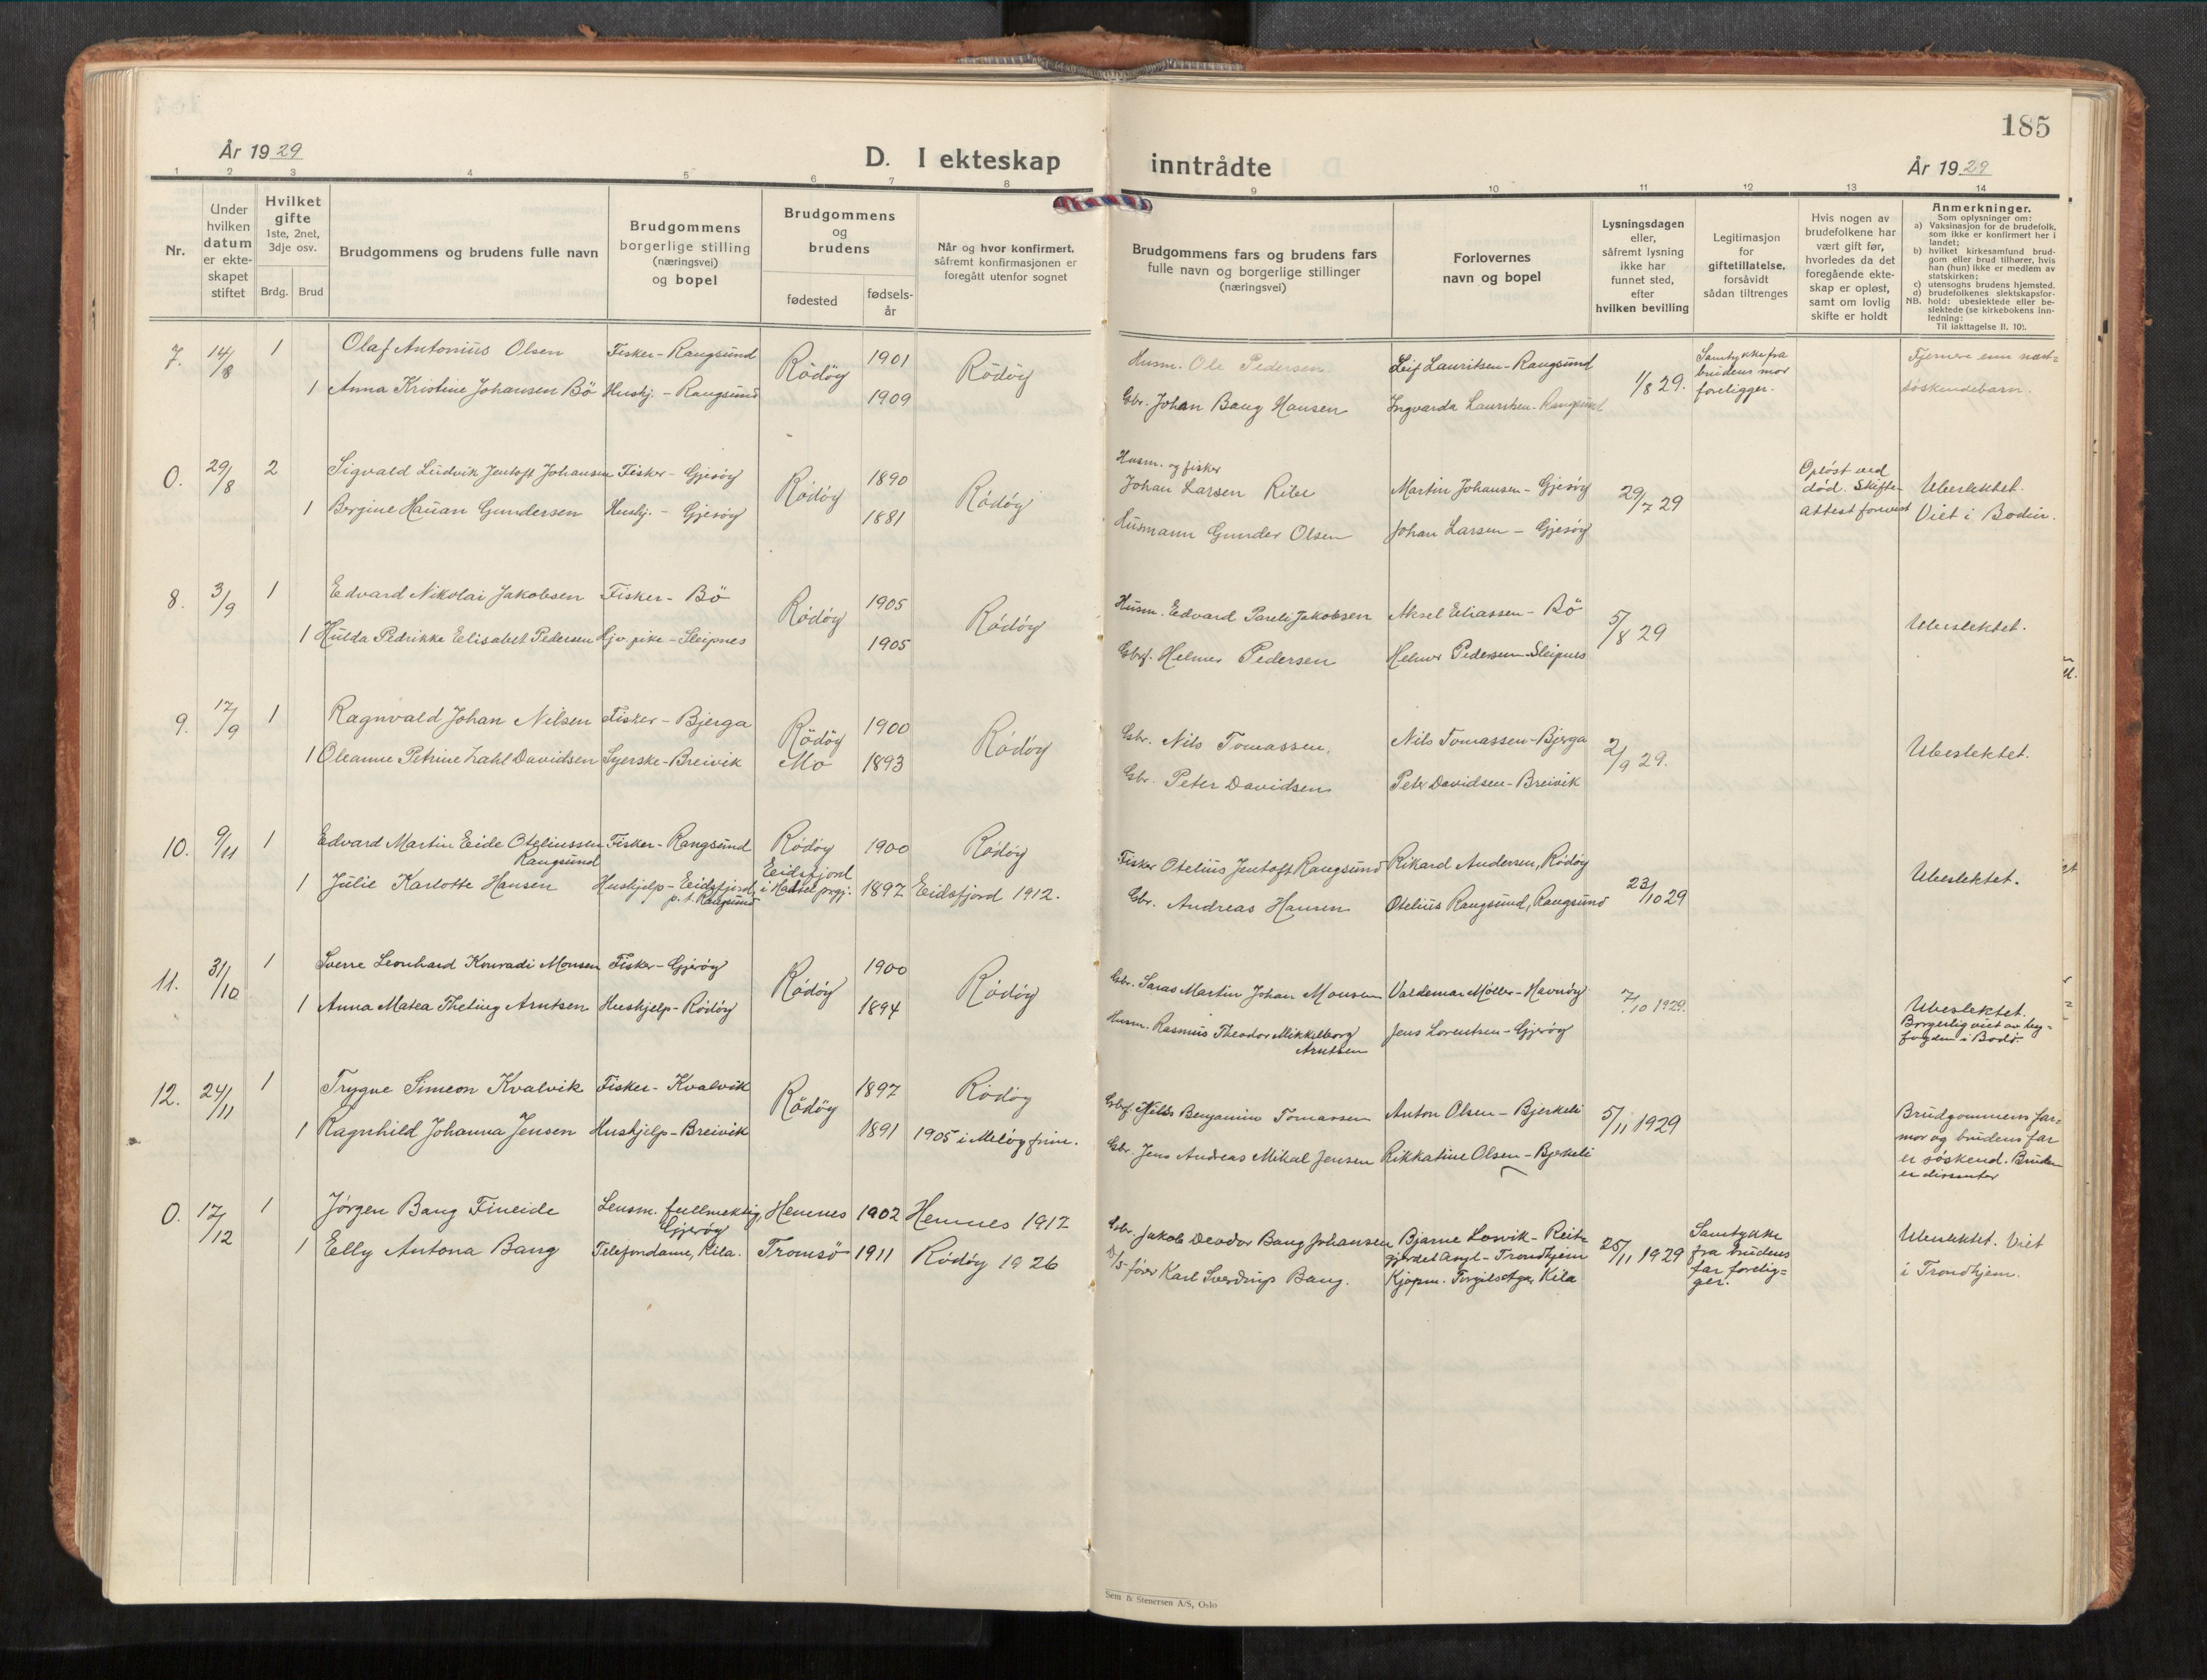 185
År 1929
D. I ekteskap inntrådte
År 1929
1 2 3 4 5 6 7 8 9 10 11 12 13 14
Nr.
Under hvilken datum er ekte-skapet stiftet
Hvilket gifte 1ste, 2net, 3dje osv.
Brdg. Brud
Brudgommens og brudens fulle navn
Brudgommens borgerlige stilling (næringsvei) og bopel
Brudgommens og brudens
fødested
fødsels-år
Når og hvor konfirmert, såfremt konfirmasjonen er foregått utenfor sognet
Brudgommens fars og brudens fars fulle navn og borgerlige stillinger (næringsvei)
Forlovernes navn og bopel
Lysningsdagen eller, såfremt lysning ikke har funnet sted, efter hvilken bevilling
Legitimasjon for giftetillatelse, forsåvidt sådan tiltrenges
Hvis nogen av brudefolkene har vært gift før, hvorledes da det foregående ekte-skap er opløst, samt om lovlig skifte er holdt
Anmerkninger.
Som oplysninger om:
a) Vaksinasjon for de brudefolk, som ikke er konfirmert her i landet;
b) hvilket kirkesamfund brud-gom eller brud tilhører, hvis han (hun) ikke er medlem av statskirken;
c) utensogns brudens hjemsted.
d) brudefolkenes slektskapsfor-hold: ubeslektede eller be-slektede (se kirkebokens inn-ledning:
NB. Til iakttagelse II. 10).
7. 14/8 1 Olaf Antonius Olsen Fisker - Rangsund Rödöy 1901 Rödöy Husm. Ole Pedersen Leif Lauritsen - Rangsund 1/8 29. Samtykke fra brudens mor foreligger. Fjernere enn næst=
1 Anna Kristine Johansen Bö Hushj. - Rangsund 1909 Gbr. Johan Bang Hansen Ingvarda Lauritsen - Rangsund søskendebarn.
0. 29/8 2 Sigvald Ludvik Jentoft Johansen Fisker - Gjesöy Rödöy 1890 Rödöy Husm. og fisker Johan Larsen Martin Johansen - Gjesöy 29/7 29 Opløst ved død. Skifte-attest forevist Ubeslektet.
1 Bergine Hauan Gundersen Hushj. - Gjesöy 1881 Husmann Gunder Olsen Johan Larsen - Gjesöy Viet i Bodin.
8. 3/9 1 Edvard Nikolai Jakobsen Fisker - Bö Rödöy 1905 Rödöy Husm. Edvard Pareli Jakobsen Aksel Eliassen - Bö 5/8 29 Ubeslektet.
1 Hulda Pedrikke Elisabet Pedersen Hjv. pike - Sleipnes 1905 Gbrf. Helmer Pedersen Helmer Pedersen - Sleipnes
9. 17/9 1 Ragnvald Johan Nilsen Fisker - Bjerga Rödöy 1900 Rödöy Gbr. Nils Tomassen Nils Tomassen - Bjerga 2/9 29. Ubeslektet.
1 Oleanne Petrine Zahl Davidsen Syerske - Breivik Mo 1893 Gbr. Peter Davidsen Peter Davidsen - Breivik
10. 9/11 1 Edvard Martin Eide Oteliussen Rangsund Fisker - Rangsund Rödöy 1900 Rödöy Fisker Otelius Jentoft Rangsund Rikard Andersen, Rödöy 23/10 29 Ubeslektet.
1 Julie Karlotte Hansen Hushjelp - Eidsfjord, p. t. Rangsund Eidsfjord i Hadsel prgj. 1897 Eidsfjord 1912. Gbr. Andreas Hansen Otelius Rangsund, Rangsund
11. 31/10 1 Sverre Leonhard Konradi Monsen Fisker - Gjeröy Rödöy 1900 Rödöy Gbr. Saras Martin Johan Monsen Valdemar Möller - Havnöy 7/10 1929. Ubeslektet.
1 Anna Matea Theting Arntsen Hushjelp - Rödöy 1894 Husm. Rasmus Theodor Mikkelborg Arntsen Jens Lorentsen - Gjeröy Borgerlig viet av by=fogden i Bodø.
12. 24/11 1 Trygve Simeon Kvalvik Fisker - Kvalvik Rödöy 1897 Rödöy Gbrf. Nils Benjamin Tomassen Anton Olsen - Bjerkeli 5/11 1929 Brudgommens far=mor og brudens far
1 Ragnhild Johanna Jensen Hushjelp - Breivik 1891 1905 i Melöy frim. Gbr. Jens Andreas Mikal Jensen Rikkatine Olsen - Bjerkeli er søskend. Bruden er dissenter
0. 17/12 1 Jörgen Bang Fineide Lensm. fullmektig, Gjeröy Hemnes 1902 Hemnes 1917 Gbr. Jakob Deodor Bang Johansen Bjarne Lovik - Reit=gjerdet Asyl - Trondhjem 25/11 1929 Samtykke fra brudens far forelig=ger. Ubeslektet. Viet
1 Elly Antona Bang Telefondame, Kila. Tromsö 1911 Rödöy 1926 D/S fører Karl Sverdrup Bang. Kjøpm. Torgils Aga, Kila i Trondhjem.
Sem & Stenersen A/S, Oslo